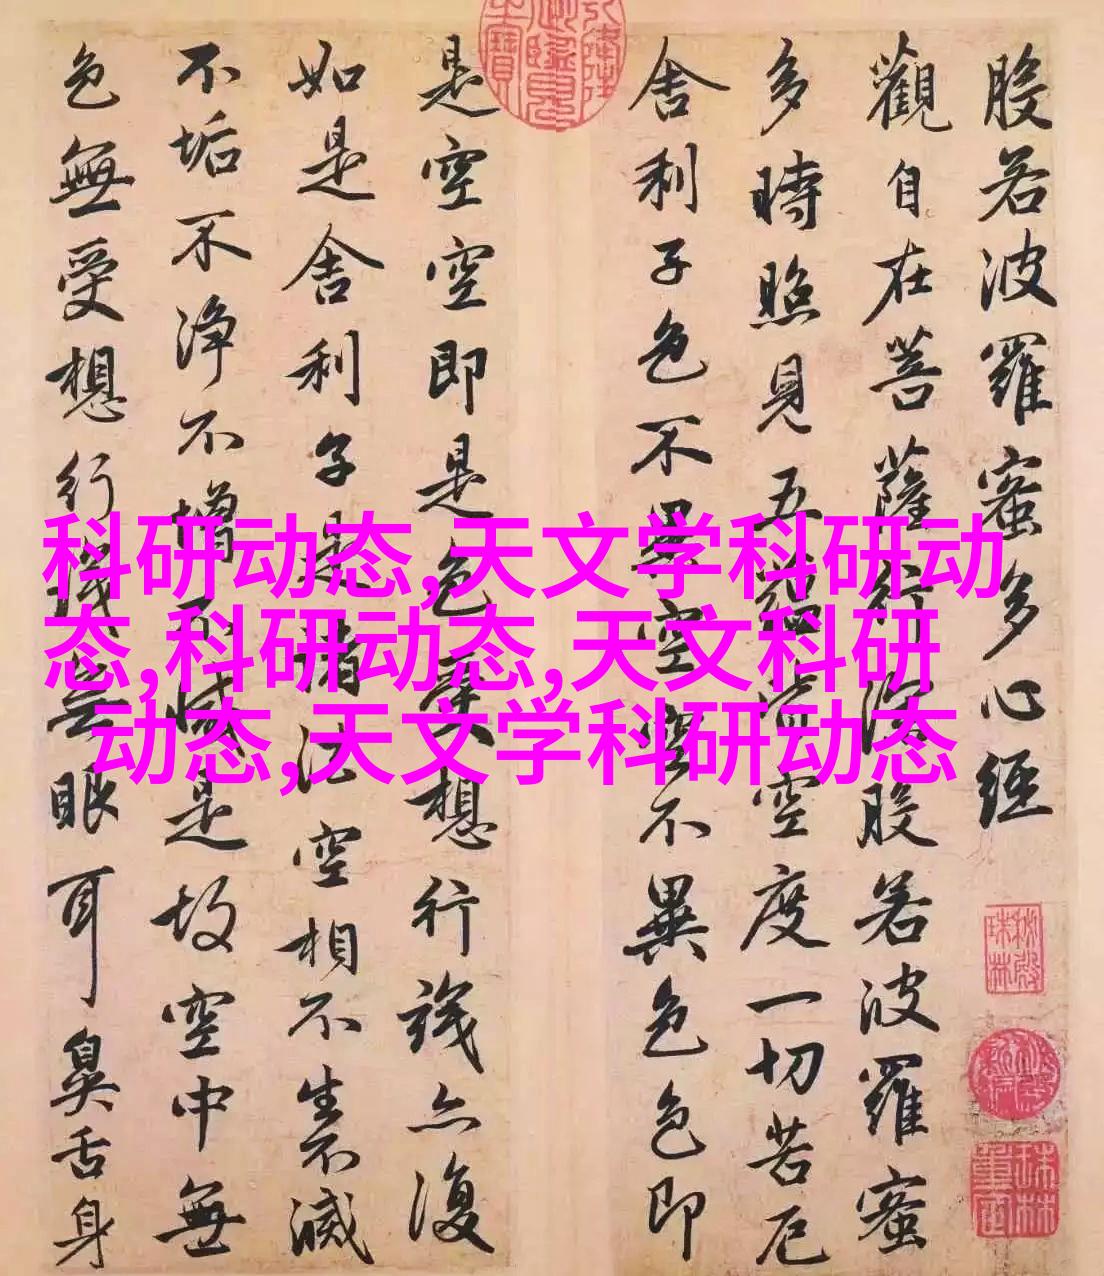 般若波羅蜜多心經
觀自在菩薩行深般若波羅蜜
多時照見五蘊皆空度一切苦厄
舍利子色不異空空不異色色即
是空空即是色受想行識亦復
如是舍利子是諸法空相不生不滅
不垢不净不增不減是故空中無
色無受想行識無眼耳鼻舌身
科研动态,天文学科研动
态,科研动态,天文科研
动态,天文学科研动态